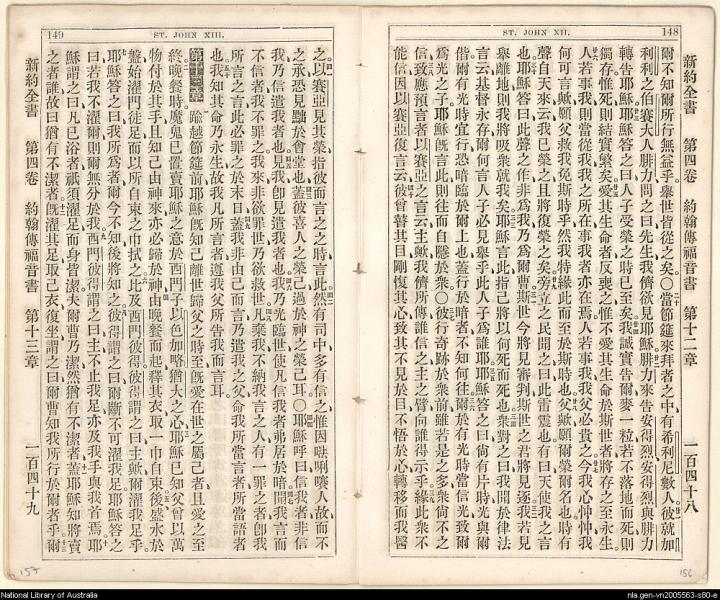 ST. JOHN XII.
148
新約全書 第四卷 約翰傳福音書 第十二章 一百四十八
爾不知爾所行無益乎舉世皆從之矣○當節筵來拜者之中有希利尼數人彼就加
利利之伯賽大人腓力問之曰先生我儕欲見耶穌腓力來告安得烈安得烈與腓力
轉告耶穌耶穌答之曰人子受榮之時已至矣我誠實告爾麥一粒若不落地而死則
獨存惟死則結實繁矣愛其生命者反喪之惟不愛其生命於斯世者將存之至永生
人若事我則當從我我之所在事我者亦在焉人若事我我父必貴之今我心忡忡我
何可言歟願父救我免斯時乎然我特緣此而至於斯時也父歟願爾榮爾名也時有
聲自天來云我已榮之且將復榮之矣旁立之民聞之曰此雷震也有曰天使與之言
也耶穌答曰此聲之作非爲我乃爲爾曹斯世今將見審判斯世之君將見逐我若見
舉離地則我將吸衆就我矣耶穌言此指己將以何死而死也衆對之曰我聞於律法
言云基督永存爾何言人子必見舉乎此人子爲誰耶耶穌言之曰尙有片時光與爾
偕爾有光時宜行恐暗臨於爾上也蓋行於暗者不知何往爾於有光時當信光致爾
爲光之子耶穌旣言此則往而自隱於衆○彼行奇跡於衆前雖若是之多衆尙不之
信致應預言者以賽亞之言云主歟我儕所傳誰信之主之臂向誰得示乎緣此衆不
能信因以賽亞復言云彼曾瞽其目剛愎其心致其不見於目不悟於心轉移而我醫
149
ST. JOHN XIII.
之以賽亞見其榮指彼而言之之時言此然有司中多有信之惟因𠵽唎㘔人故而不
之承恐見黜於會堂也蓋彼喜人之榮已過於神之榮已耳○耶穌呼曰信我者非信
我乃信遣我者也見我卽見遣我者也我乃光臨世使凡信我者弗居於暗聞我言而
不信者我不罪之我來非欲罪世乃欲救世凡棄我不納我言之人有一罪之者卽我
所言之言此必罪之於末日蓋我非由己而言乃遣我之父命我所當言者所當語者
也我知其命乃永生故我凡所言者遵我父所告我而言耳
第十三章 踰越節筵前耶穌旣知己離世歸父之時至旣愛在世之屬己者且愛之至
終晚餐時魔鬼已置賣耶穌之意於西門子以色加畧猶大之心耶穌已知父曾以萬
物付於其手且知己由神來亦必歸於神由晚餐而起釋其衣取一巾自束後盛水於
盤始濯門徒足而以所自束之巾拭之比及西門彼得彼得謂之曰主歟爾濯我足乎
耶穌答之曰我所爲者爾今不知後將知之彼得謂之曰爾斷不可濯我足耶穌答之
曰若我不濯爾則爾無分於我西門彼得謂之曰主不止我足亦及我手與我首焉耶
穌謂之曰凡已浴者祇須濯足而身皆潔夫爾曹乃潔然猶有不潔者蓋耶穌知將賣
之者誰故曰猶有不潔者旣濯其足取己衣復坐謂之曰爾曹知我所行於爾者乎爾
新約全書 第四卷 約翰傳福音書 第十三章 一百四十九
157
156
National Library of Australia
nla.gen-vn2005563-s80-e